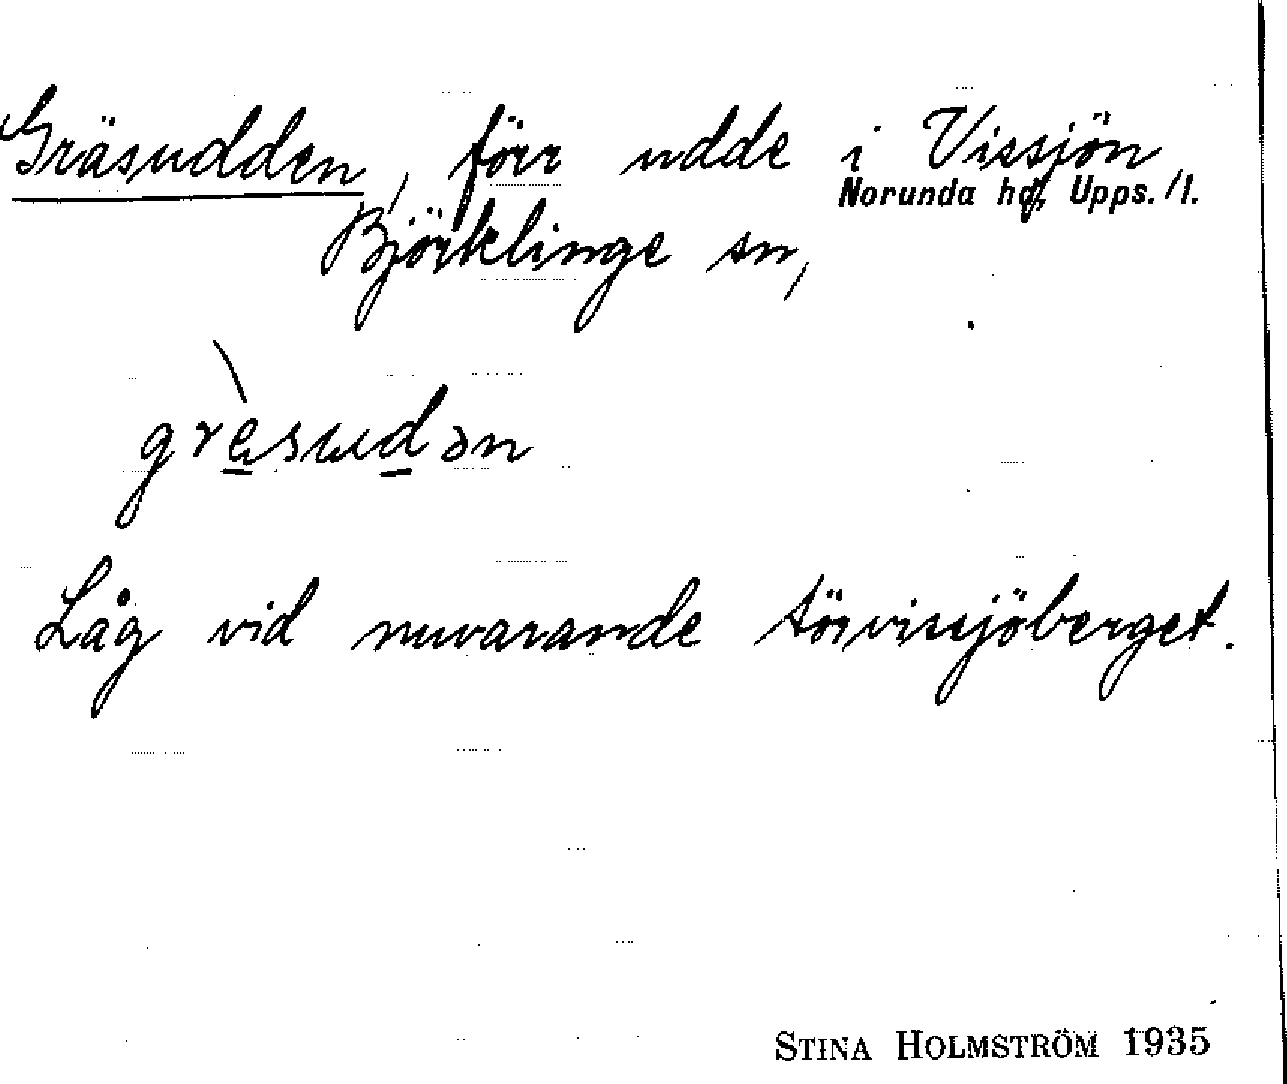 Gräsudden, förr udde i Vissjön,
Norunda hd, Upps. l.
Björklinge sn,
grèsudən
Låg vid nuvarande törvissjöberget.
STINA HOLMSTRÖM 1935